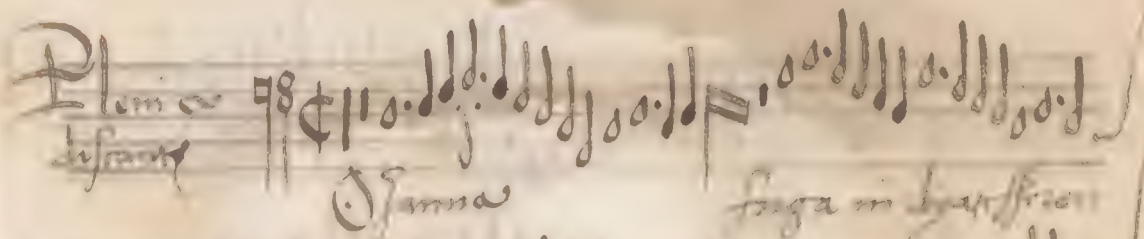 Plem ex
discantu
Osanna fuga in